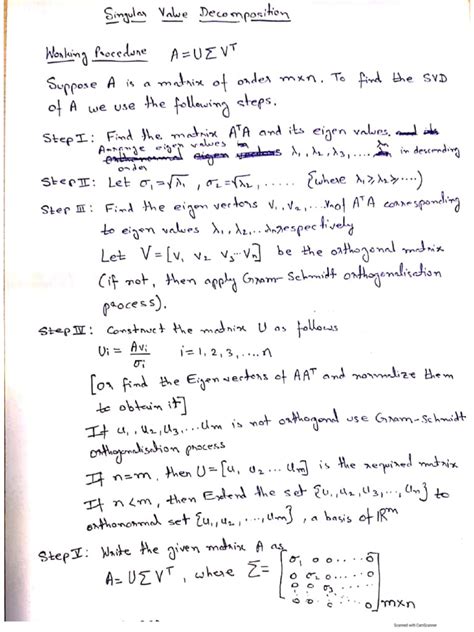 Singular Value Decomposition
Working Procedure A=UΣVᵀ
Suppose A is a matrix of order m×n. To find the SVD
of A we use the following steps.
Step I: Find the matrix AᵀA and its eigen values,
Arrange eigen values in
orthonormal eigen vectors λ₁, λ₂, λ₃, .... λn in descending
order
Step II: Let σ₁=√λ₁, σ₂=√λ₂, ...... {where λ₁≥λ₂≥....}
Step III: Find the eigen vectors v₁, v₂, ...vn of AᵀA corresponding
to eigen values λ₁, λ₂,...λn respectively
Let V=[v₁ v₂ v₃...vn] be the orthogonal matrix
(if not, then apply Gram-Schmidt orthogonalisation
process).
Step IV: Construct the matrix U as follows
ui = Avi/σi i=1,2,3,....n
[or find the Eigen vectors of AAᵀ and normalize them
to obtain it]
If u₁, u₂, u₃...um is not orthogonal use Gram-Schmidt
orthogonalisation process
If n=m, then U=[u₁ u₂ ... um] is the required matrix
If n<m, then Extend the set {u₁, u₂, u₃, ..., un} to
orthonormal set {u₁, u₂, ..., um}, a basis of ℝᵐ
Step V: Write the given matrix A as
A=UΣVᵀ, where Σ= [σ₁ 0 0 .... 0
0 σ₂ 0 .... 0
0 0 σ₃ .... 0
0 0 0 .... 0] m×n
Scanned with CamScanner